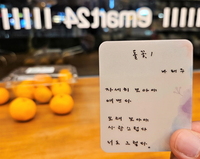 emart24
풀꽃 1
나태주
자세히 보아야
예쁘다
오래 보아야
사랑스럽다
너도 그렇다.